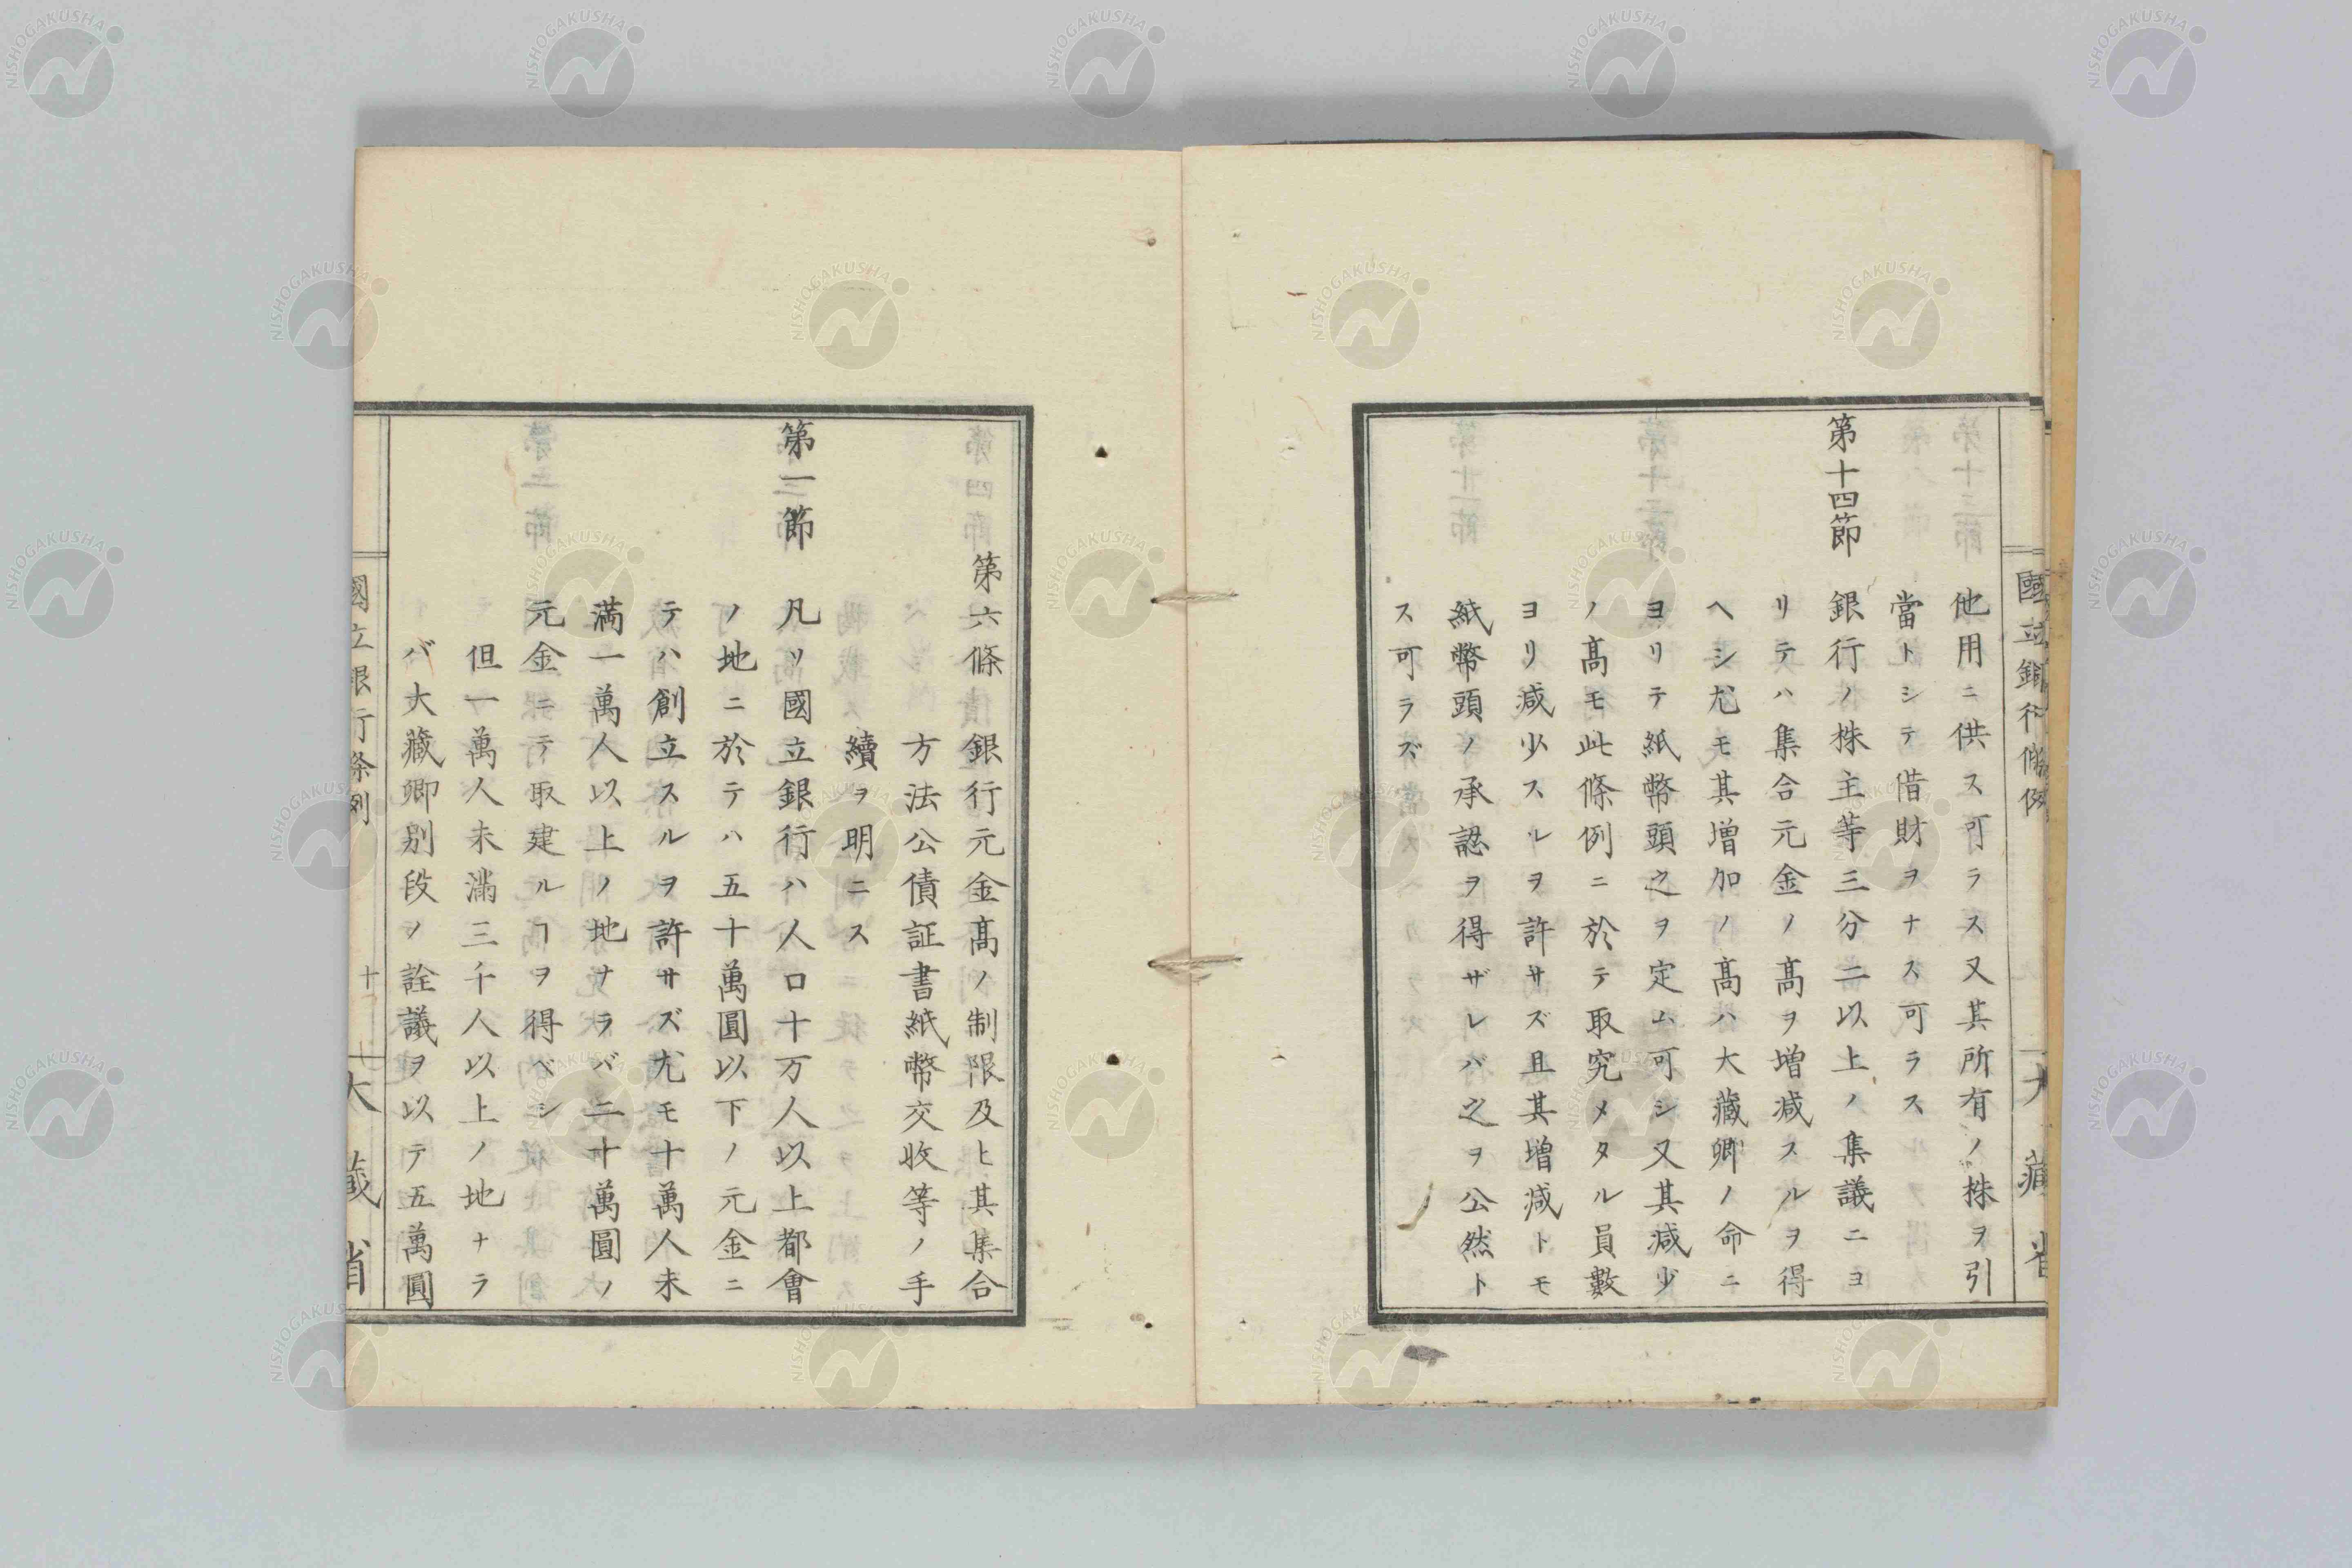 國立銀行條例
大藏省
他用ニ供ス可ラス又其所有ノ株ヲ引
當トシテ借財ヲナス可ラス
第十四節 銀行ノ株主等三分二以上ノ集議ニヨ
リテハ集合元金ノ髙ヲ増减スルヲ得
ヘシ尤モ其増加ノ髙ハ大藏卿ノ命ニ
ヨリテ紙幣頭之ヲ定ム可シ又其减少
ノ髙モ此條例ニ於テ取究メタル員數
ヨリ减少スルヲ許サズ且其増减トモ
紙幣頭ノ承認ヲ得ザレバ之ヲ公然ト
ス可ラズ
第六條 銀行元金髙ノ制限及ヒ其集合
方法公債証書紙幣交收等ノ手
續ヲ明ニス
第一節 凡ソ國立銀行ハ人口十万人以上都會
ノ地ニ於テハ五十萬圓以下ノ元金ニ
テハ創立スルヲ許サズ尤モ十萬人未
満一萬人以上ノ地ナラバ二十萬圓ノ
元金ニテ取建ルヿヲ得ベシ
但一萬人未滿三千人以上ノ地ナラ
バ大藏卿别段ノ詮議ヲ以テ五萬圓
國立銀行條例
十
大藏省
NISHOGAKUSHA